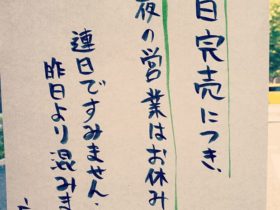 日完売につき、
夜の営業はお休み
連日ですみません。
昨日より混みま